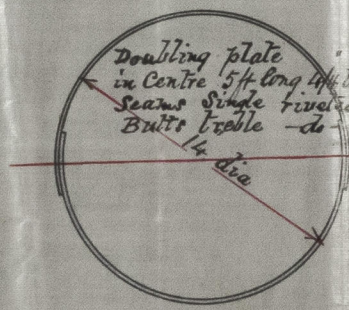 Doubling plate
in Centre 5ft long
Seams Single
Butts treble -do-
14 dia